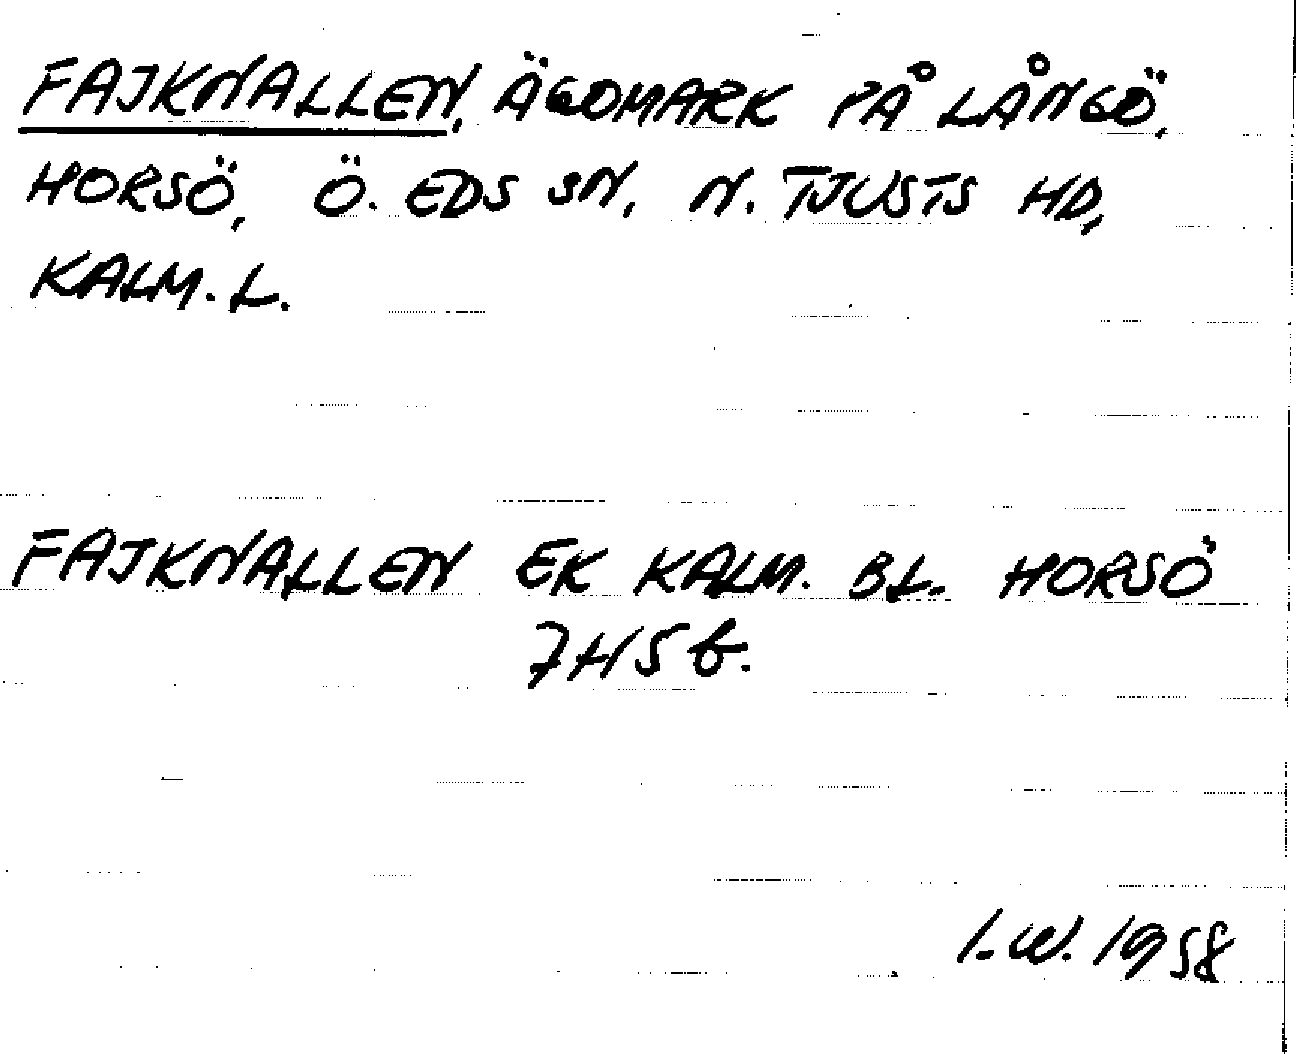 FAJKNALLEN, ÄGOMARK PÅ LÅNGÖ,
HORSÖ, Ö. EDS SN, N. TJUSTS HD,
KALM. L.
FAJKNALLEN EK KALM. BL. HORSÖ
7H5b.
I.W. 1958